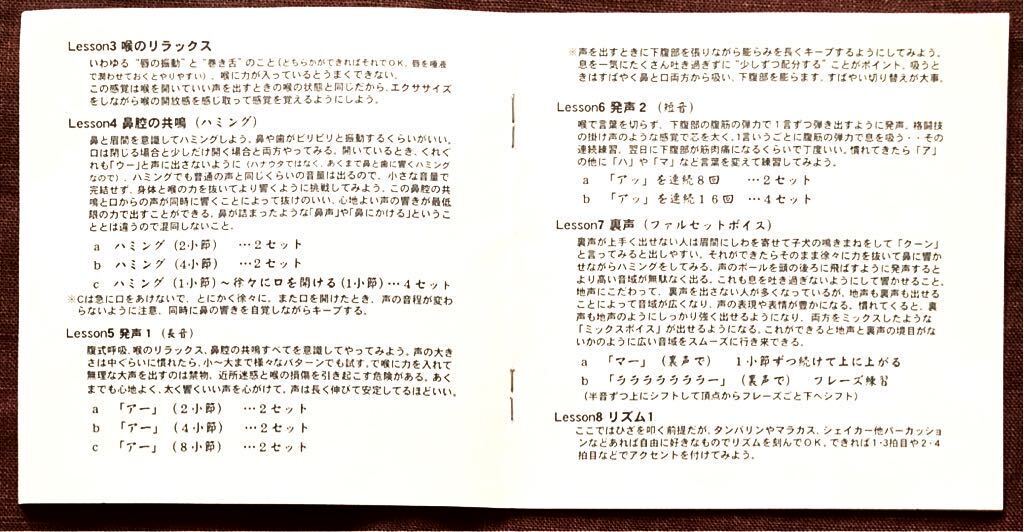 Lesson3 喉のリラックス
いわゆる “唇の振動” と “巻き舌” のこと(どちらかができればそれでOK。唇を唾液
で潤わせておくとやりやすい)。喉に力が入っているとうまくできない。
この感覚は喉を開いていい声を出すときの喉の状態と同じだから、エクササイズ
をしながら喉の開放感を感じ取って感覚を覚えるようにしよう。
Lesson4 鼻腔の共鳴 (ハミング)
鼻と眉間を意識してハミングしよう。鼻や歯がビリビリと振動するくらいがいい。
口は閉じる場合と少しだけ開く場合と両方やってみる。開いているとき、くれぐ
れも「ウー」と声に出さないように(ハナウタではなく、あくまで鼻と歯に響くハミング
なので)。ハミングでも普通の声と同じくらいの音量は出るので、小さな音量で
完結せず、身体と喉の力を抜いてより響くように挑戦してみよう。この鼻腔の共
鳴と口からの声が同時に響くことによって抜けのいい、心地よい声の響きが最低
限の力で出すことができる。鼻が詰まったような「鼻声」や「鼻にかける」というこ
ととは違うので混同しないこと。
a ハミング (2小節) …2セット
b ハミング (4小節) …2セット
c ハミング (1小節)～徐々に口を開ける(1小節)…4セット
※Cは急に口をあけないで、とにかく徐々に、また口を開けたとき、声の音程が変わ
らないように注意、同時に鼻の響きを自覚しながらキープする。
Lesson5 発声1 (長音)
腹式呼吸、喉のリラックス、鼻腔の共鳴すべてを意識してやってみよう。声の大き
さは中ぐらいに慣れたら、小～大まで様々なパターンでも試す。で喉に力を入れて
無理な大声を出すのは禁物、近所迷惑と喉の損傷を引き起こす危険がある。あく
までも心地よく、太く響くいい声を心がけて。声は長く伸びて安定してるほどいい。
a 「アー」(2小節) …2セット
b 「アー」(4小節) …2セット
c 「アー」(8小節) …2セット
※声を出すときに下腹部を張りながら膨らみを長くキープするようにしてみよう。
息を一気にたくさん吐き過ぎずに “少しずつ配分する” ことがポイント。吸うと
きはすばやく鼻と口両方から吸い、下腹部を膨らます。すばやい切り替えが大事。
Lesson6 発声2 (短音)
喉で言葉を切らず、下腹部の腹筋の弾力で1言ずつ弾き出すように発声。格闘技
の掛け声のような感覚で芯を太く。1言いうごとに腹筋の弾力で息を吸う・・その
連続練習。翌日に下腹部が筋肉痛になるくらいで丁度いい。慣れてきたら「ア」
の他に「ハ」や「マ」など言葉を変えて練習してみよう。
a 「アッ」を連続8回 …2セット
b 「アッ」を連続16回 …4セット
Lesson7 裏声 (ファルセットボイス)
裏声が上手く出せない人は眉間にしわを寄せて子犬の鳴きまねをして「クーン」
と言ってみると出しやすい。それができたらそのまま徐々に力を抜いて鼻に響か
せながらハミングをしてみる。声のボールを頭の後ろに飛ばすように発声すると
より高い音域が無駄なく出る。これも息を吐き過ぎないようにして響かせること。
地声にこだわって、裏声を出さない人が多くなっているが、地声も裏声も出せる
ことによって音域が広くなり、声の表現や表情が豊かになる。慣れてくると、裏
声も地声のようにしっかり強く出せるようになり、両方をミックスしたような
「ミックスボイス」が出せるようになる。これができると地声と裏声の境目がな
いかのように広い音域をスムーズに行き来できる。
a 「マー」(裏声で) 1小節ずつ続けて上に上がる
b 「ラララララララー」(裏声で) フレーズ練習
(半音ずつ上にシフトして頂点からフレーズごと下へシフト)
Lesson8 リズム1
ここではひざを叩く前提だが、タンバリンやマラカス、シェイカー他パーカッショ
ンなどあれば自由に好きなものでリズムを刻んでOK。できれば1・3拍目や2・4
拍目などでアクセントを付けてみよう。